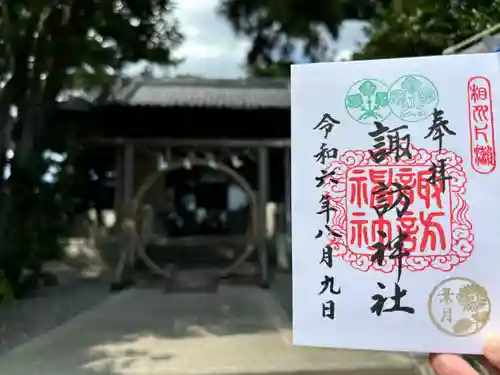 相州片瀬
奉拝
諏訪神社
諏訪
神社
令和六年八月九日
葉月